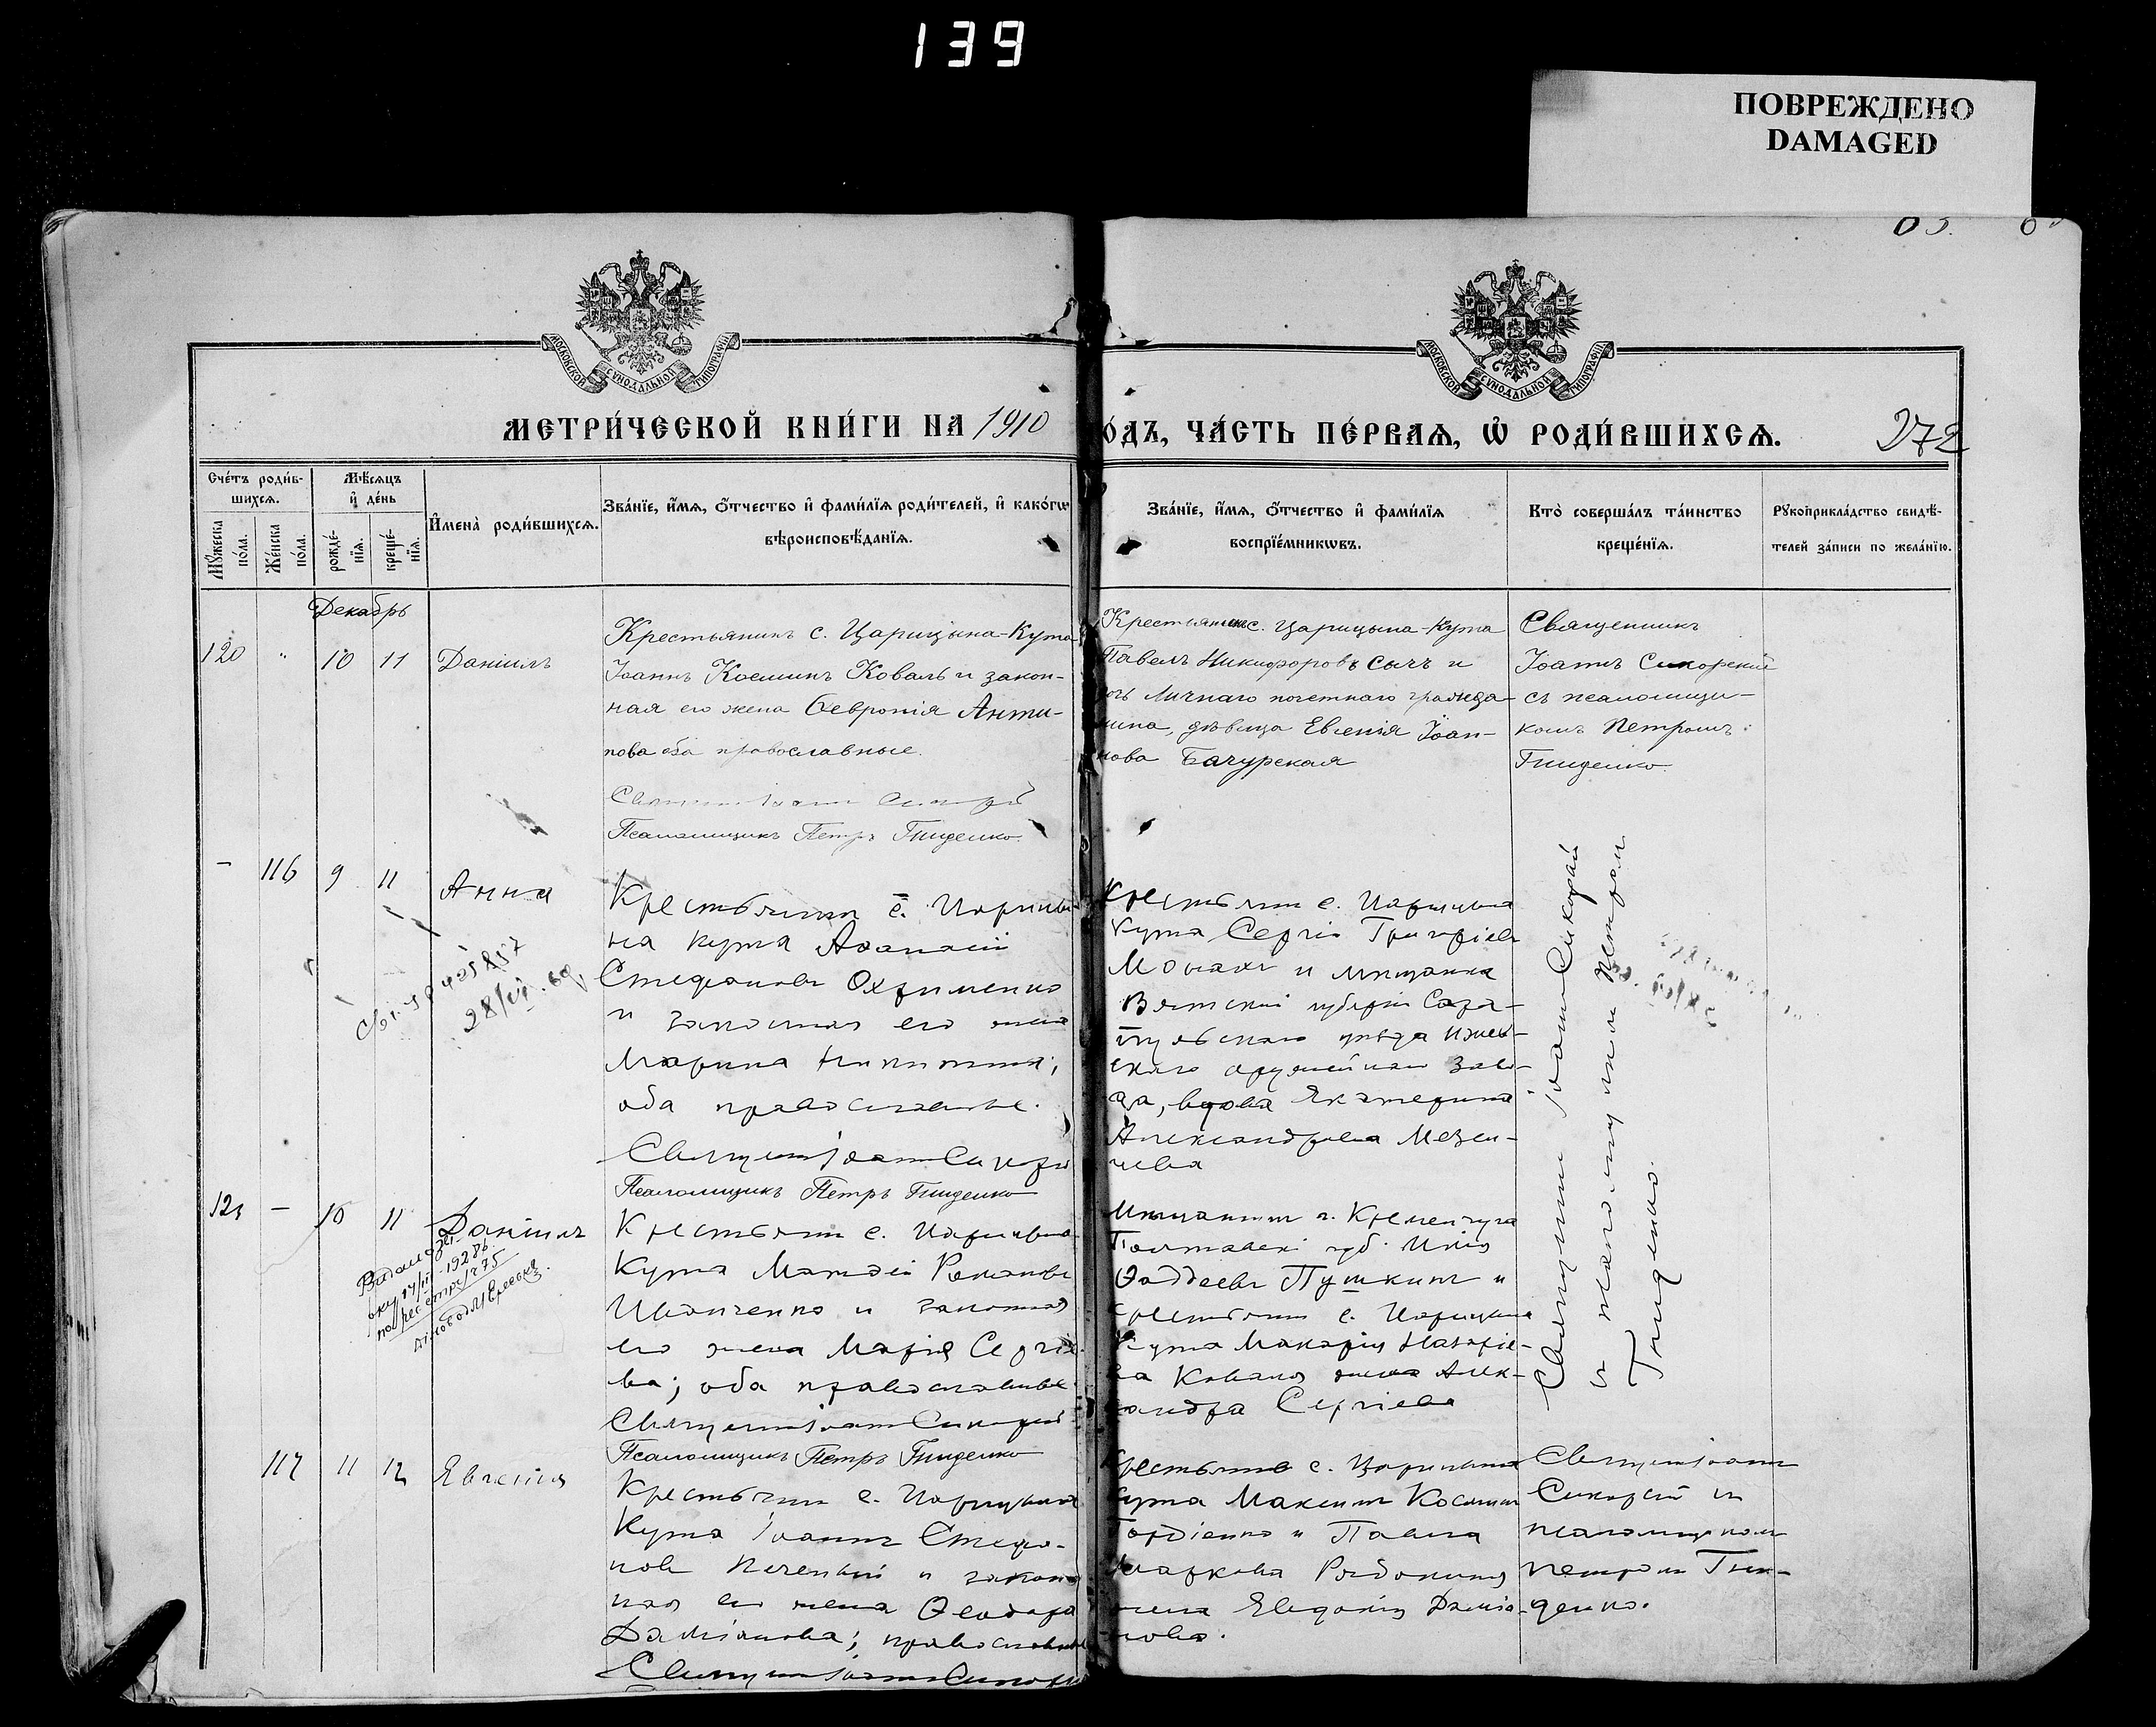 139
ПОВРЕЖДЕНО
DAMAGED
МОСКОВСКОЙ СѴНОДАЛЬНОЙ ТИПОГРАФІИ
МОСКОВСКОЙ СѴНОДАЛЬНОЙ ТИПОГРАФІИ
МЕТРИ́ЧЕСКОЙ КНИ́ГИ НА 1910
ОДЪ, ЧА́СТЬ ПЕ́РВАѦ, Ѡ҆ РОДИ́ВШИХСѦ.
272
Сче́тъ роди́в-
шихсѧ.
Мꙋ́жеска по́ла.
Же́нска по́ла.
Мѣ́сѧцъ
и҆ де́нь
рожде́-
нїѧ.
креще́-
нїѧ.
И҆мена̀ роди́вшихсѧ.
Зва́нїе, и҆́мѧ, ѻ҆́тчество и҆ фами́лїѧ роди́телей, и҆ како́гѡ
вѣроисповѣ́данїѧ.
Зва́нїе, и҆́мѧ, ѻ҆́тчество и҆ фами́лїѧ
воспрїе́мникѡвъ.
Кто̀ соверша́лъ та́инство
креще́нїѧ.
Рꙋкоприкла́дство свидѣ́-
телей за́писи по жела́нїю.
Декабрь
120 " 10 11 Даніилъ
Крестьянинъ с. Царицына-Кута
Іоаннъ Косминъ Коваль и закон-
ная его жена Ѳевронія Анти-
пова оба православные.
Псаломщикъ Петръ Гниденко.
Крестьянинъ с. Царицына-Кута
Павелъ Никифоровъ Сычъ и
дочь личнаго почетнаго гражда-
нина, дѣвица Евгенія Іоан-
нова Бачурская
Священникъ
Іоаннъ Сикорскій
съ псаломщи-
комъ Петромъ
Гниденко.
- 116 9 11 Анна
28/VI.
Крестьянинъ с. Царицы-
на Кута Аѳанасій
Стефановъ Охрименко
и законная его жена
Марина Никитина;
оба православные.
Священникъ Іоаннъ Сикорскій
Псаломщикъ Петръ Гниденко
Крестьянинъ с. Царицына
Кута Сергій Григорьевъ
Монахъ и мѣщанка
Вятской губерніи Сара-
пульскаго уѣзда Ижев-
скаго оружейнаго заво-
да, вдова Екатерина
Александрова Мезен-
цева
Священникъ Іоаннъ Сикорскій
съ псаломщикомъ Петромъ
Гниденко.
121 - 10 11 Даніилъ
Крестьянинъ с. Царицына
Кута Матѳей Романовъ
Иванченко и законная
его жена Марія Сергіе-
ва; оба православные
Священникъ Іоаннъ Сикорскій
Псаломщикъ Петръ Гниденко
Мѣщанинъ г. Кременчуга
Полтавской губ. Илія
Ѳаддеевъ Пушкинъ и
крестьянина с. Царицына
Кута Макарія Назаріе-
ва Коваля жена Алек-
сандра Сергіева
117 11 12 Евгенія
Крестьянинъ с. Царицына
Кута Іоаннъ Стефа-
новъ Печеный и закон-
ная его жена Ѳеодора
Даміанова; православные
Священникъ Іоаннъ Сикорскій
Крестьяне с. Царицына
Кута Максимъ Косминъ
Гордіенко и Павла
Маркова Рябокина
жена Евдокія Даміа-
нова.
Священникъ Іоаннъ
Сикорскій съ
псаломщикомъ
Петромъ Гни-
денко.